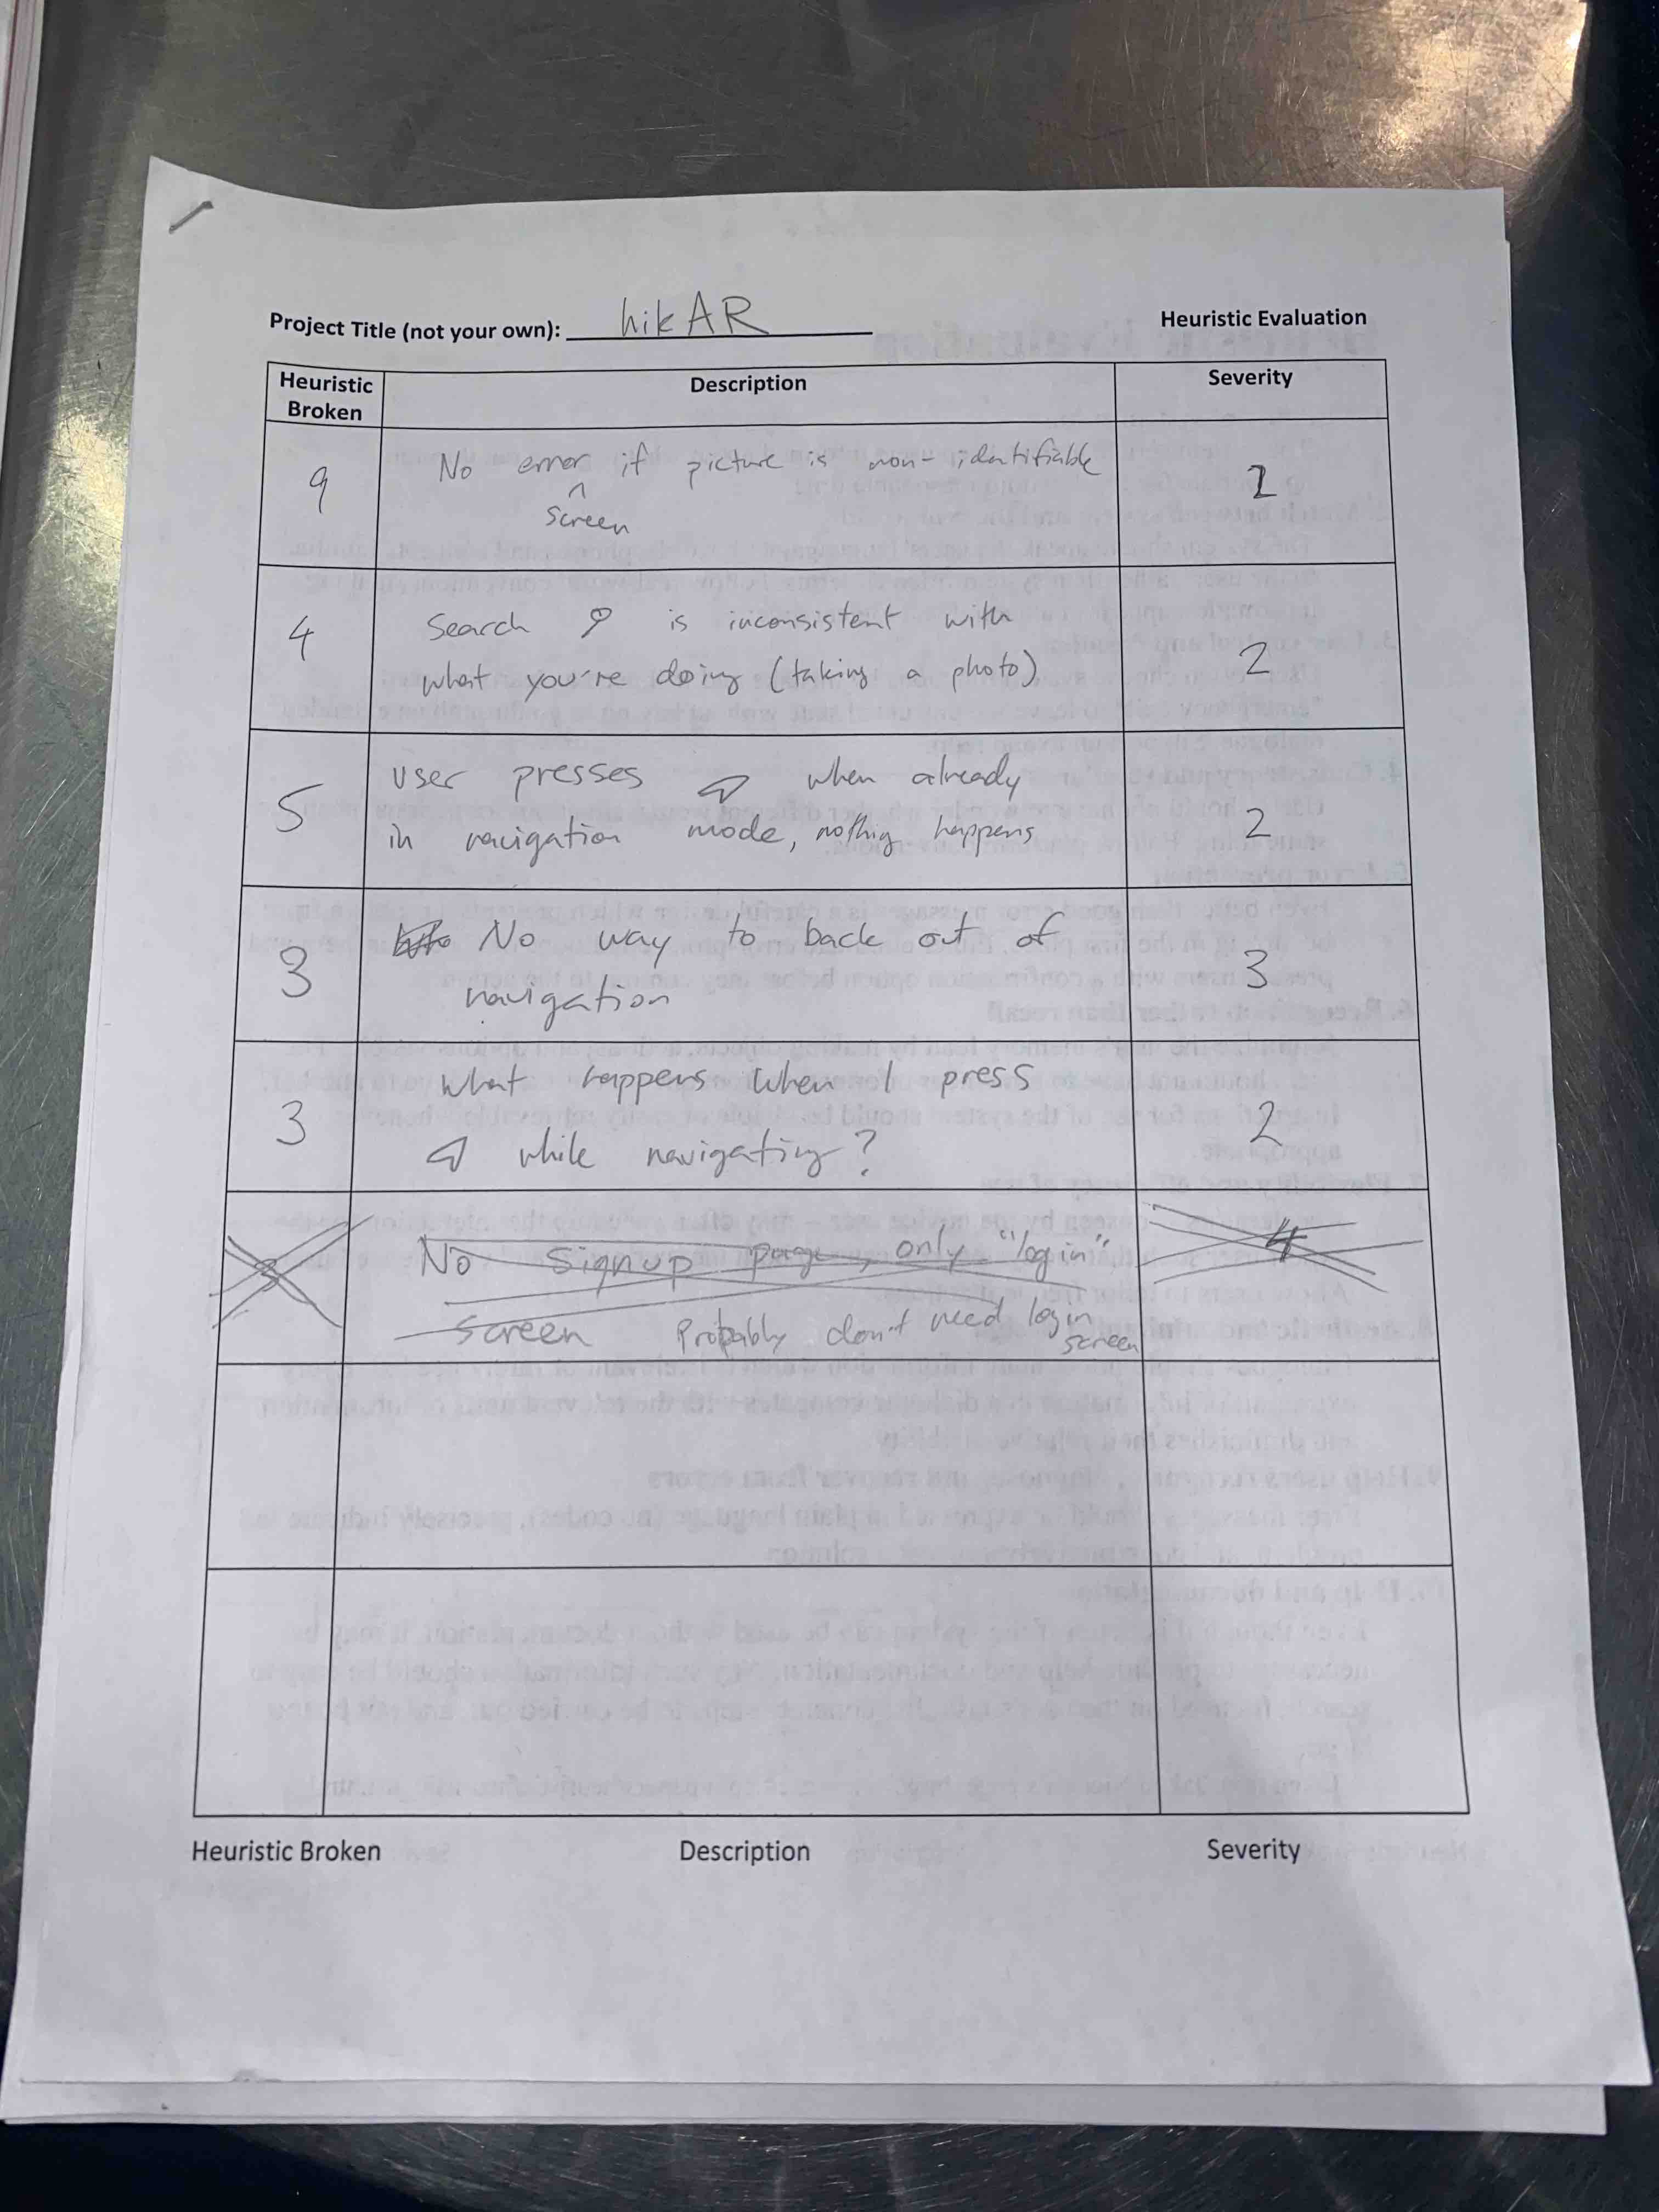 Project Title (not your own): hikAR
Heuristic Evaluation
Heuristic Broken
Description
Severity
9
No error screen if picture is non-identifiable
2
4
Search is inconsistent with
what you're doing (taking a photo)
2
5
user presses when already
in navigation mode, nothig happens
2
3
No way to back out of
navigation
3
3
What happens when I press
while navigating?
2
No signup page, only "login"
screen Probably don't need login
screen
4
Heuristic Broken
Description
Severity